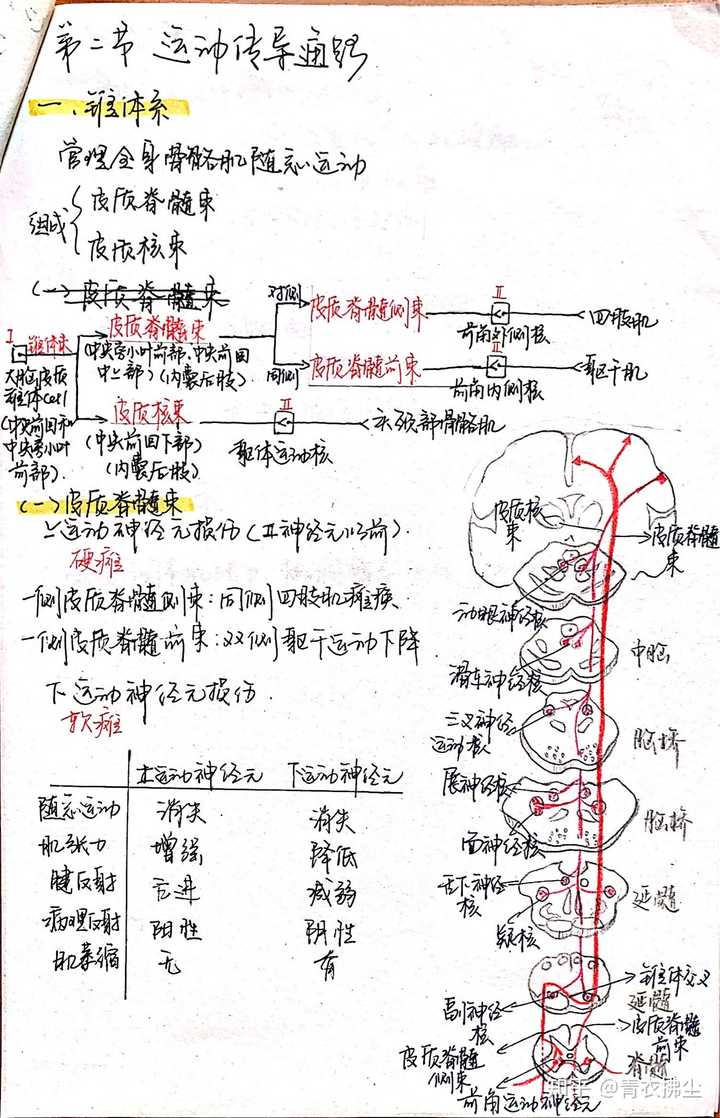 第二节 运动传导通路
一、锥体系
管理全身骨骼肌随意运动
组成
皮质脊髓束
皮质核束
(一) 皮质脊髓束
I
锥体束
大脑皮质
锥体cell
(中央前回和
中央旁小叶
前部)
皮质脊髓束
(中央旁小叶前部、中央前回
中上部)(内囊后肢)
对侧
皮质脊髓侧束
II
前角外侧核
四肢肌
同侧
皮质脊髓前束
II
前角内侧核
躯干肌
皮质核束
(中央前回下部)
(内囊后肢)
II
躯体运动核
头颈部骨骼肌
(一)皮质脊髓束
上运动神经元损伤(II神经元以前).
硬瘫
一侧皮质脊髓侧束:同侧四肢肌瘫痪
一侧皮质脊髓前束:双侧躯干运动下降
下运动神经元损伤.
软瘫
上运动神经元 下运动神经元
随意运动 消失 消失
肌张力 增强 降低
腱反射 亢进 减弱
病理反射 阳性 阴性
肌萎缩 无 有
皮质核束
皮质脊髓束
动眼神经核
滑车神经核
中脑
三叉神经运动核
脑桥
展神经核
面神经核
脑桥
舌下神经核
疑核
延髓
锥体交叉
延髓
副神经核
皮质脊髓前束
皮质脊髓侧束
脊髓
前角运动神经元
知乎 @青衣拂尘